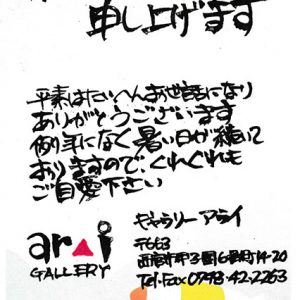 申し上げます
平素はたいへんお世話になり
ありがとうございます
例年になく暑い日が続いて
おりますので、くれぐれも
ご自愛下さい
arai
GALLERY
ギャラリーアライ
〒663
西宮市甲3園6番町14-20
Tel・Fax 0798-42-2263